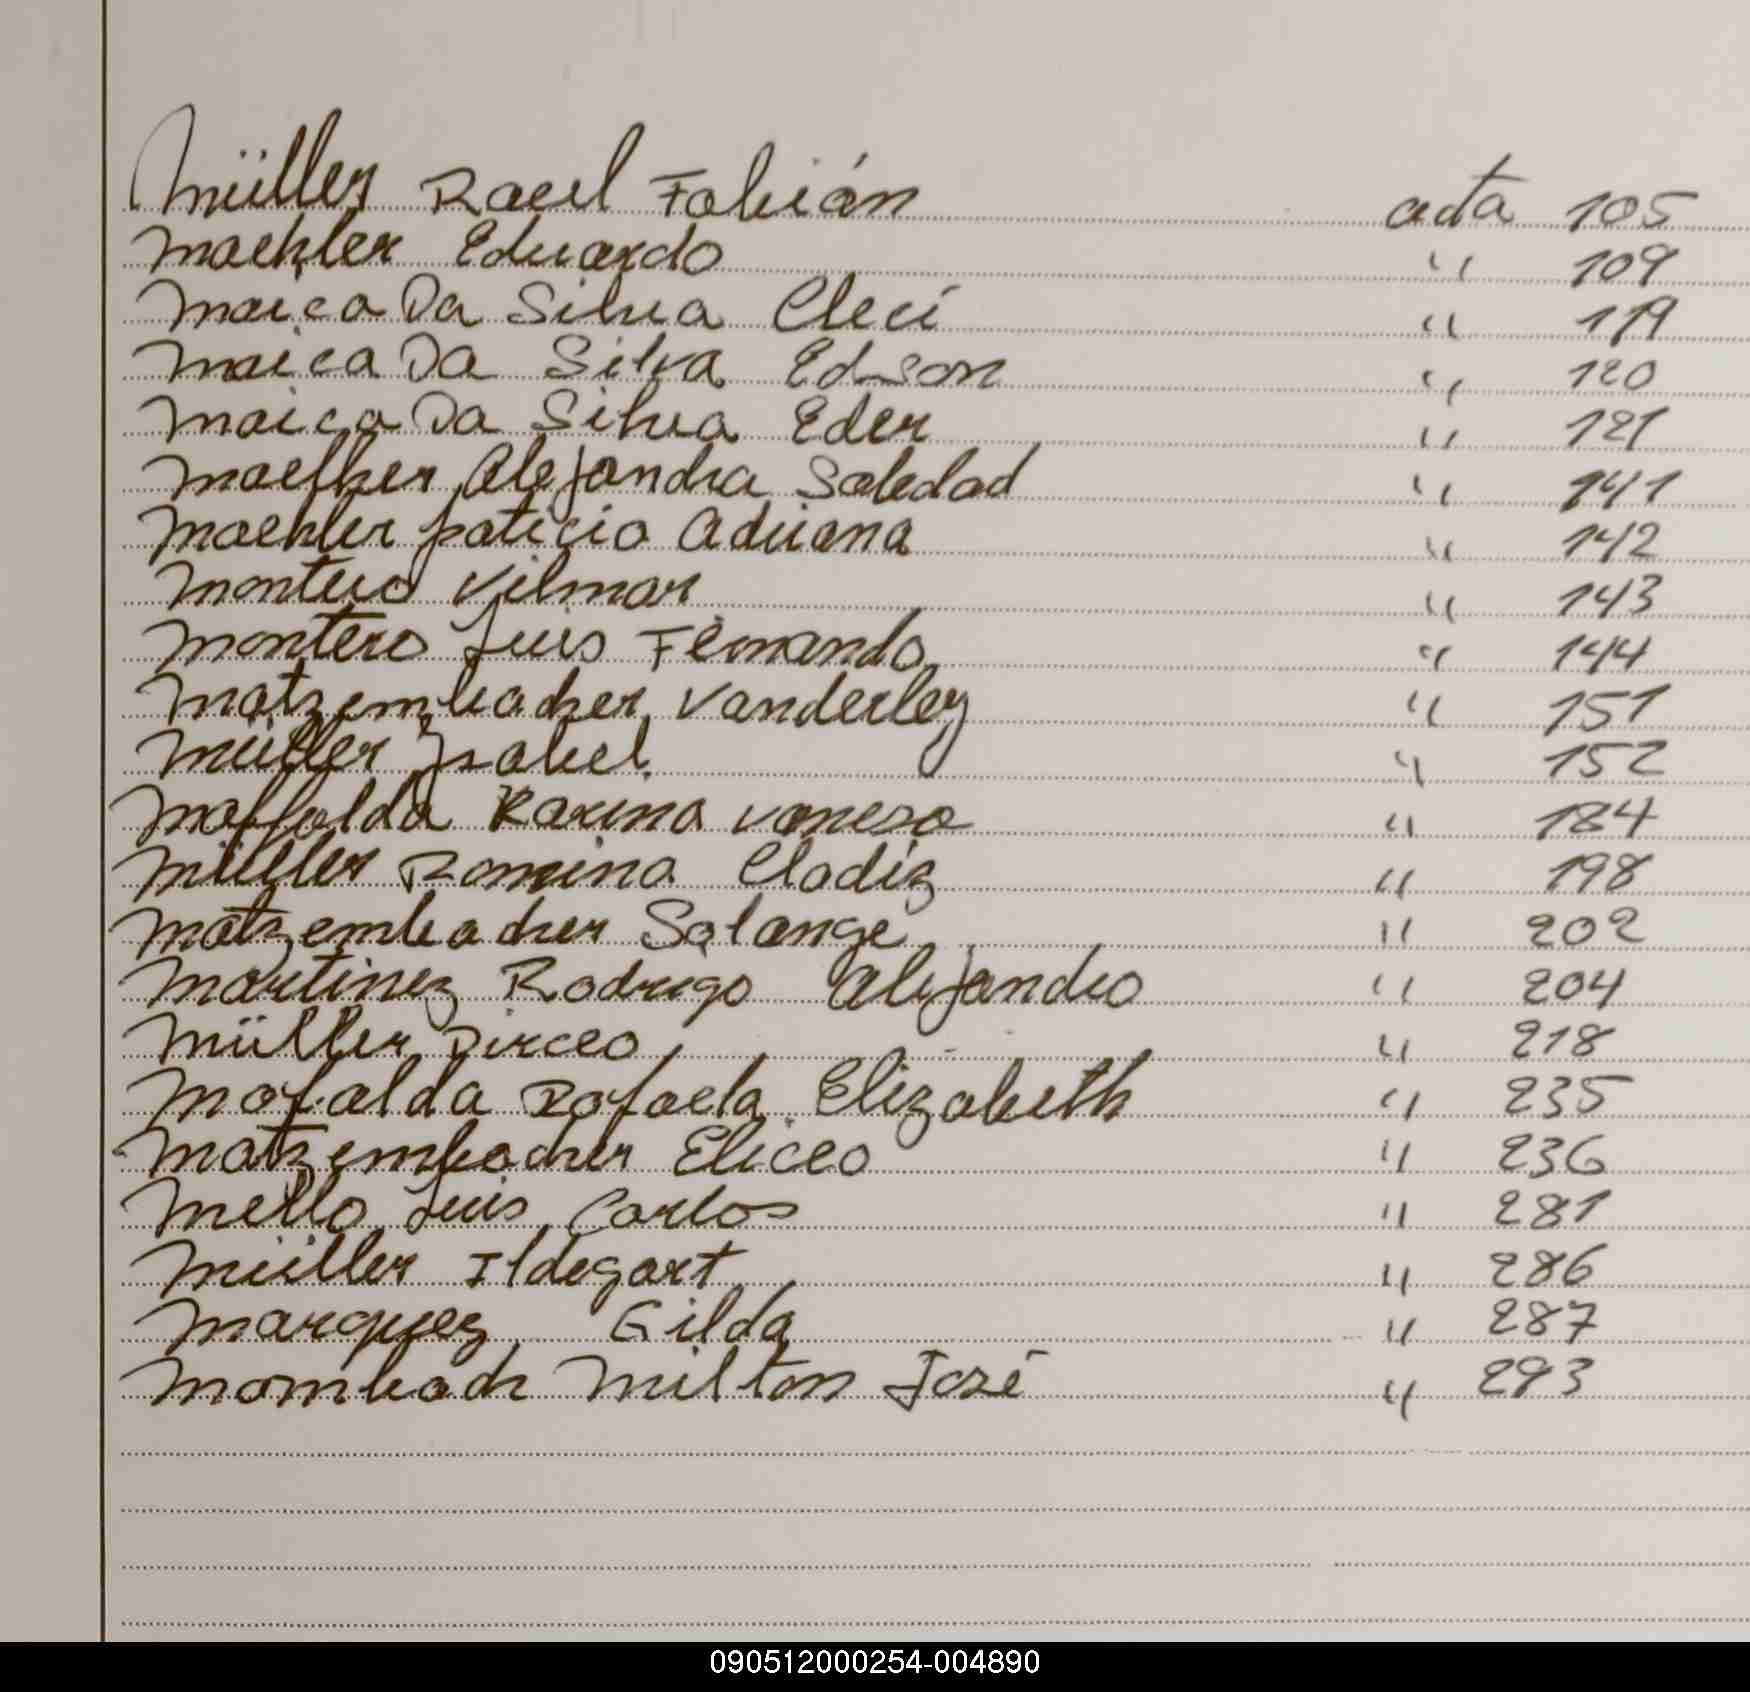 Müller Raul Fabián acta 105
Maehler Eduardo " 109
Maica Da Silva Cleci " 119
Maica Da Silva Edson " 120
Maica Da Silva Eder " 121
Maelher Alejandra Soledad " 141
Maehler Paticia Adriana " 142
Montero Vilmar " 143
Montero Luis Fernando " 144
Matzembacher Vanderley " 151
Müller Isabel " 152
Maffalda Karina Vanesa " 184
Müller Romina Cladiz " 198
Matzembacher Solange " 202
Martinez Rodrigo Alejandro " 204
Müller Dirceo " 218
Mofalda Rafaela Elizabeth " 235
Matzembacher Eliceo " 236
Mello Luis Carlos " 281
Müller Ildegart " 286
Marquez Gilda " 287
Mombach Milton José " 293
090512000254-004890